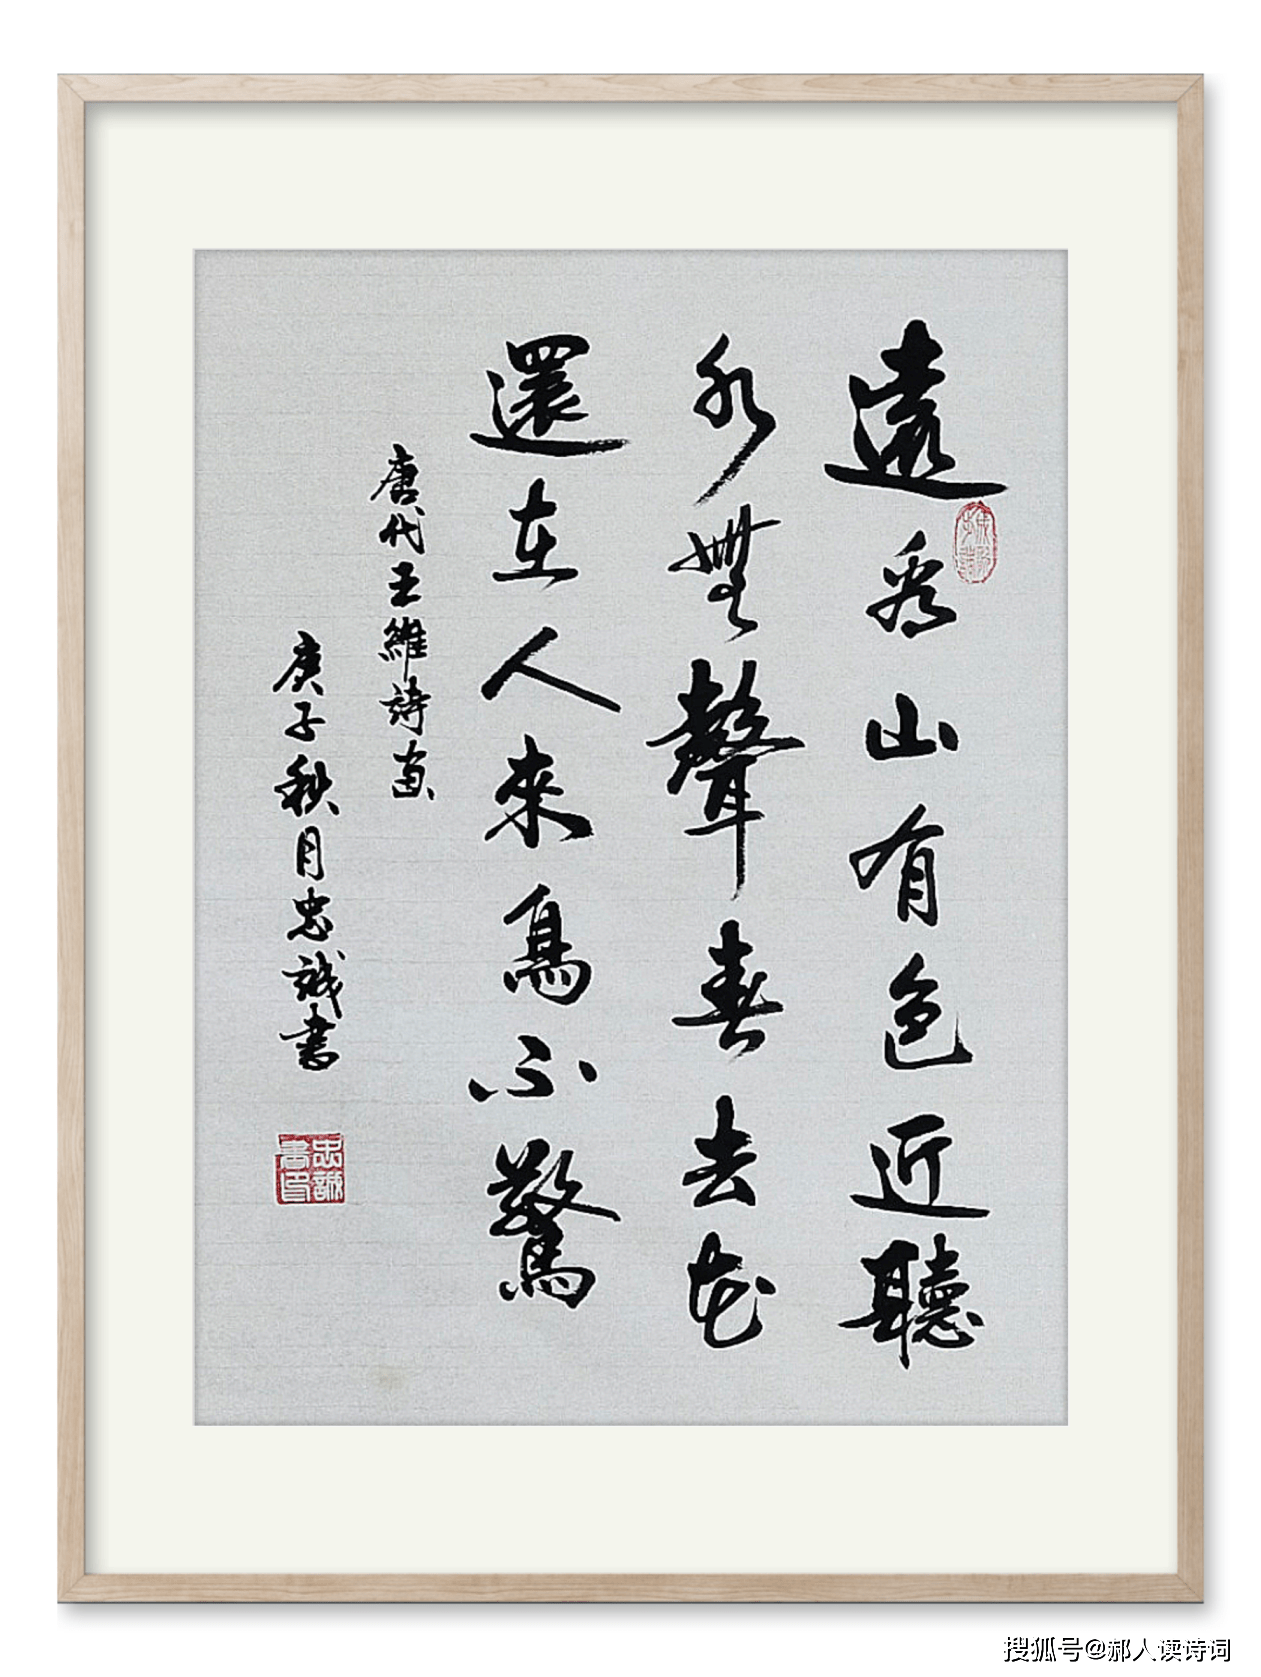 遠看山有色近聽
水無聲春去花
還在人來鳥不驚
唐代王維詩畫
庚子秋月忠誠書
忠誠書印
搜狐号@郝人读诗词